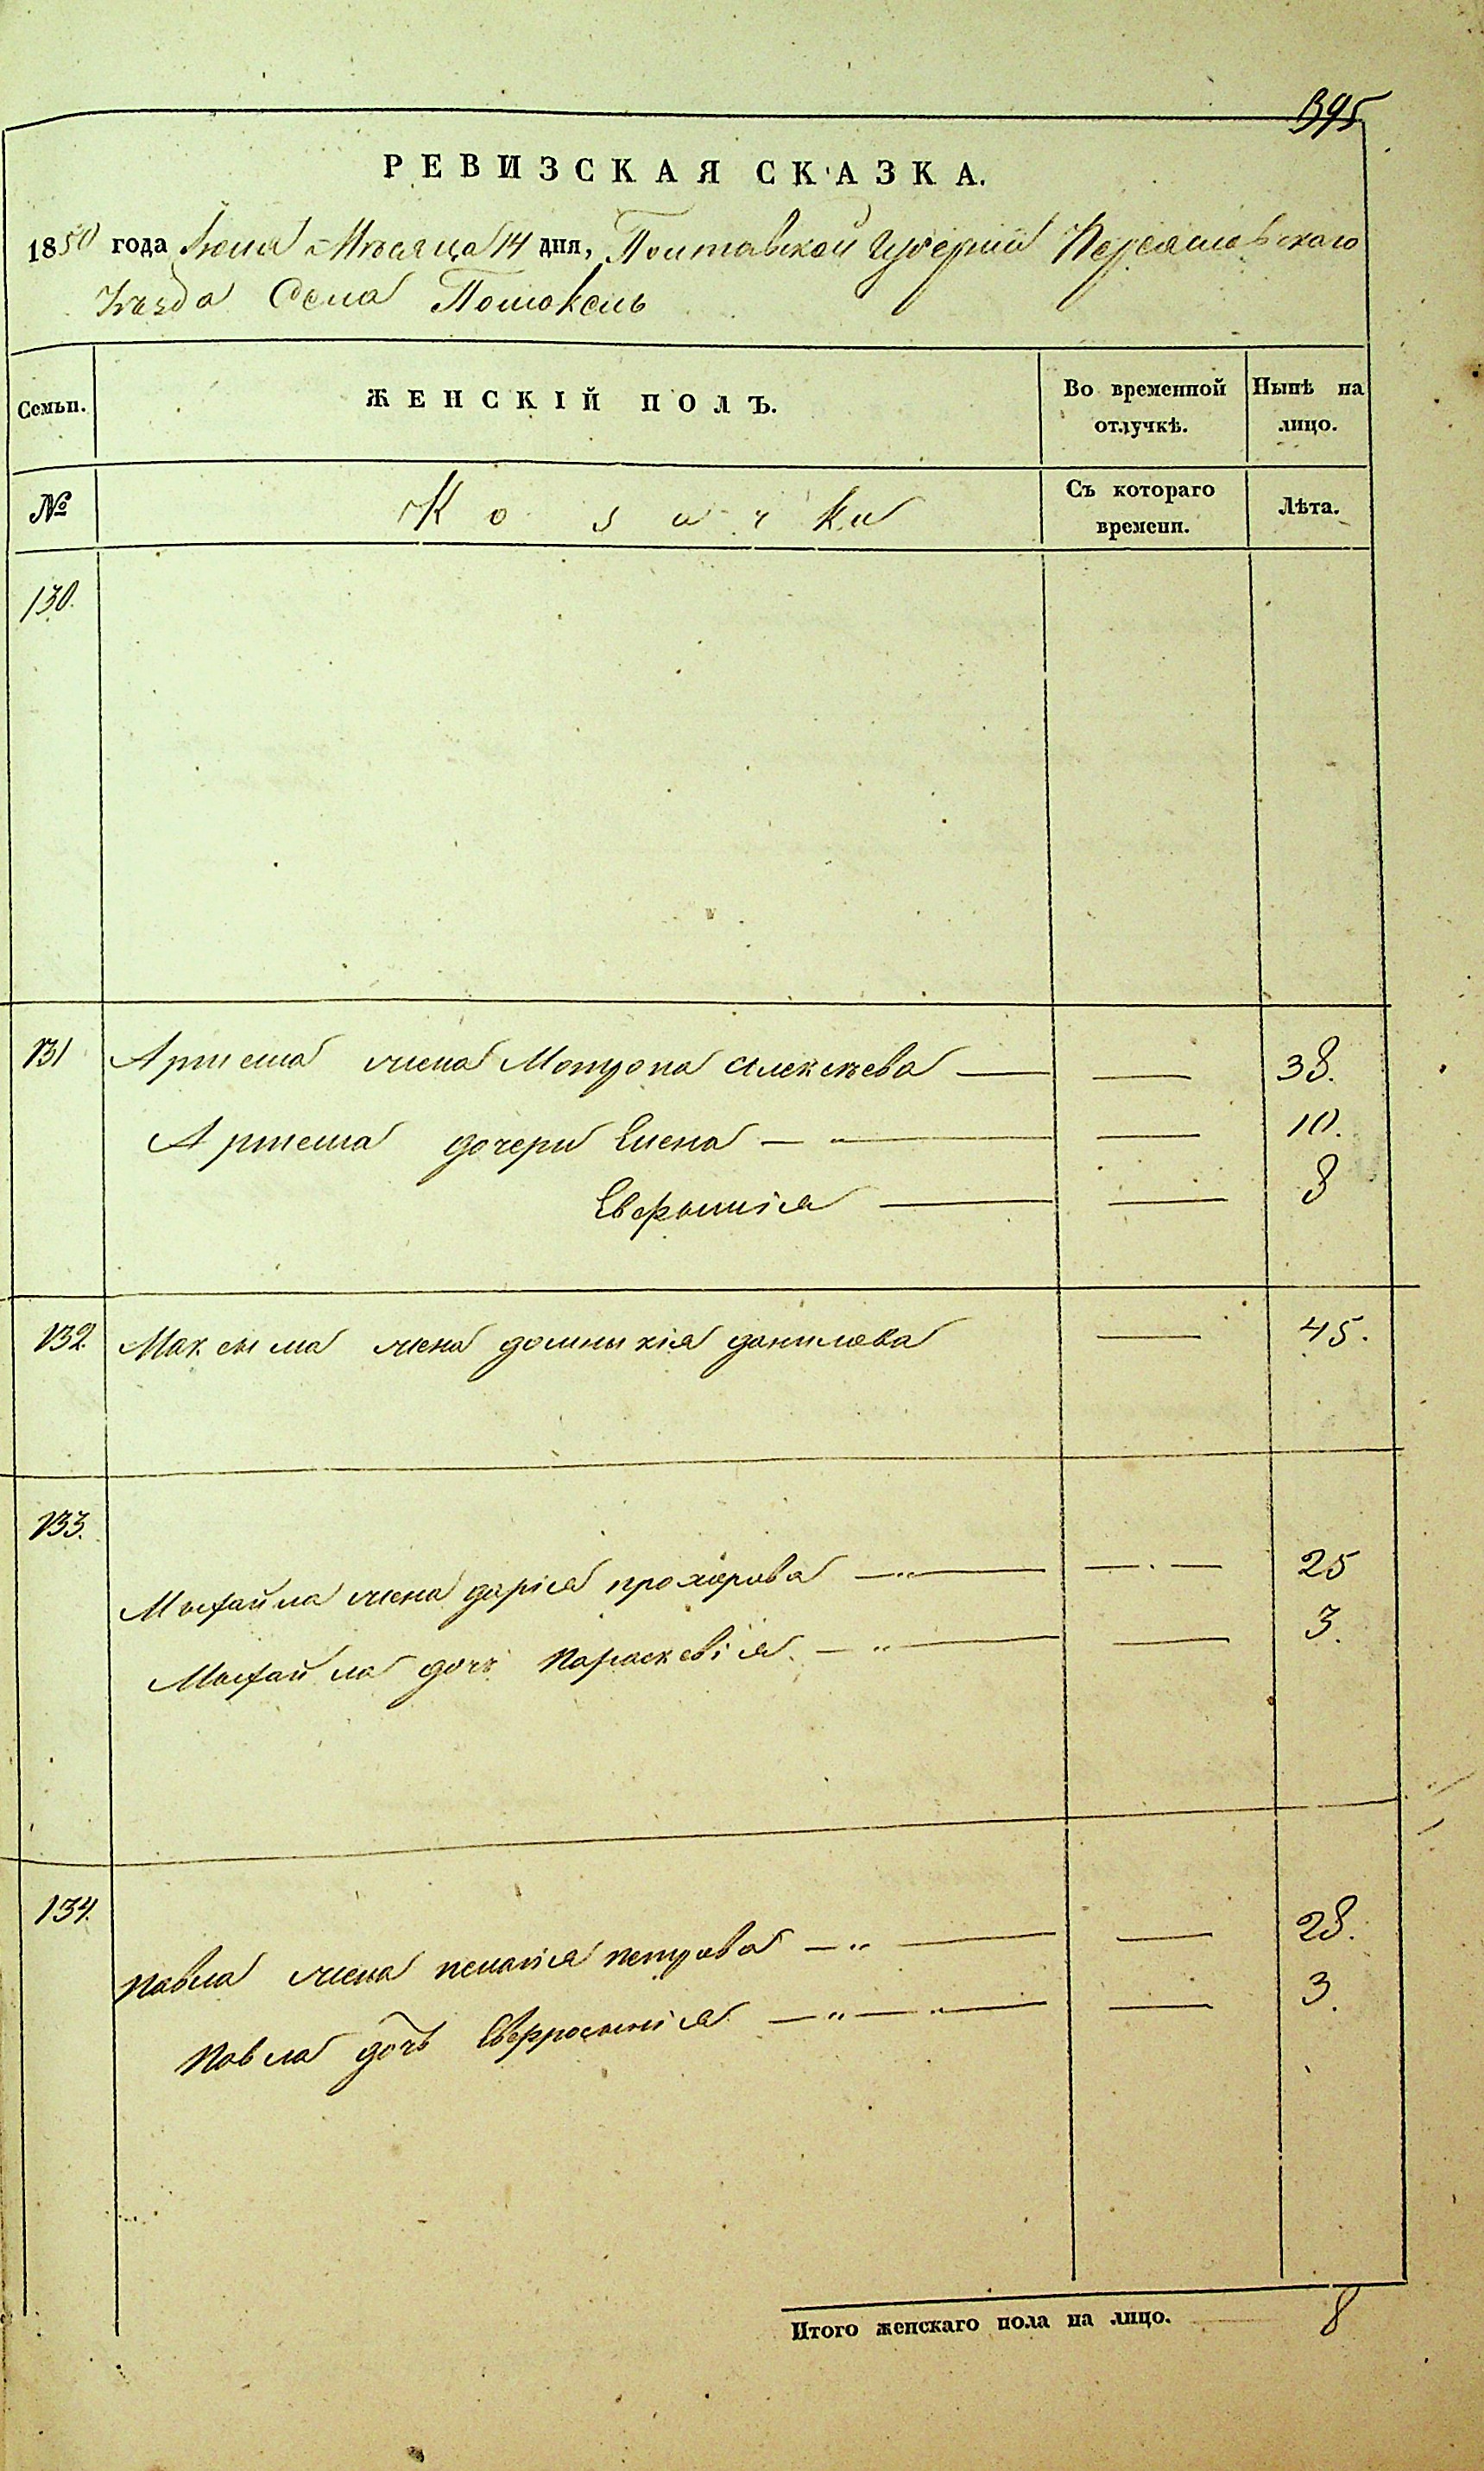 395
РЕВИЗСКАЯ СКАЗКА.
1850 года Июля Мѣсяца 14 дня, Полтавской Губерніи Переяславскаго
Уѣзда Села Помоклъ
Семьи. ЖЕНСКІЙ ПОЛЪ. Во временной отлучкѣ. Нынѣ на лицо.
№ Козачки Съ котораго времени. Лѣта.
130.
131 Артема жена Мотрона Алексѣева — — 38.
Артема дочери Елена — — 10.
Евфимія — — 8
132. Максыма жена домныкія данилова — 45.
133.
Мыхайла жена дарія прохорова — — 25
Мыхайла дочь Параскевія. — — 3.
134.
Павла жена пелагія петрова — — 28.
Павла дочь Евфросинія — — 3.
Итого женскаго пола на лицо. 8